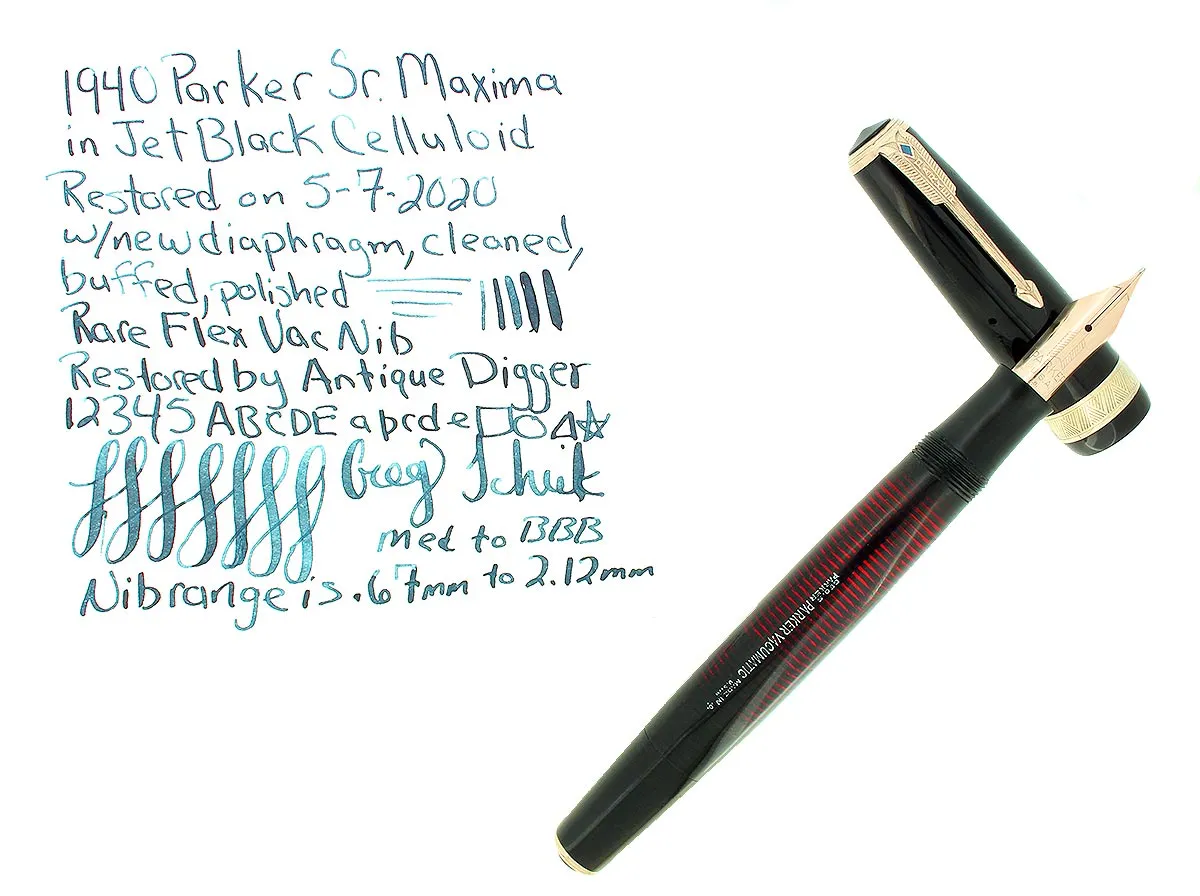 1940 Parker Sr. Maxima
in Jet Black Celluloid
Restored on 5-7-2020
w/new diaphragm, cleaned,
buffed, polished
Rare Flex Vac Nib
Restored by Antique Digger
12345 ABCDE abcde
Greg
med to BBB
Nib range is .67mm to 2.12mm
PARKER VACUMATIC MADE IN